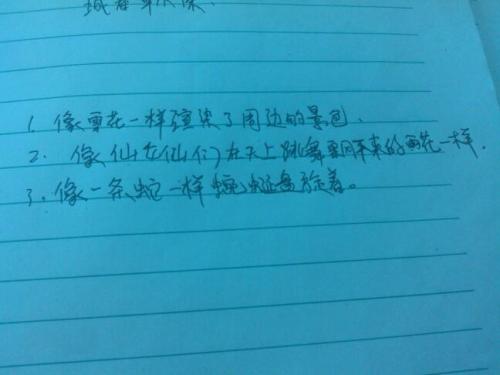 城春草木深.
1. 像雪花一样渲染了周边的景色.
2. 像仙女仙们在天上跳舞飘下来的雪花一样.
3. 像一条蛇一样蜿蜒盘旋着。